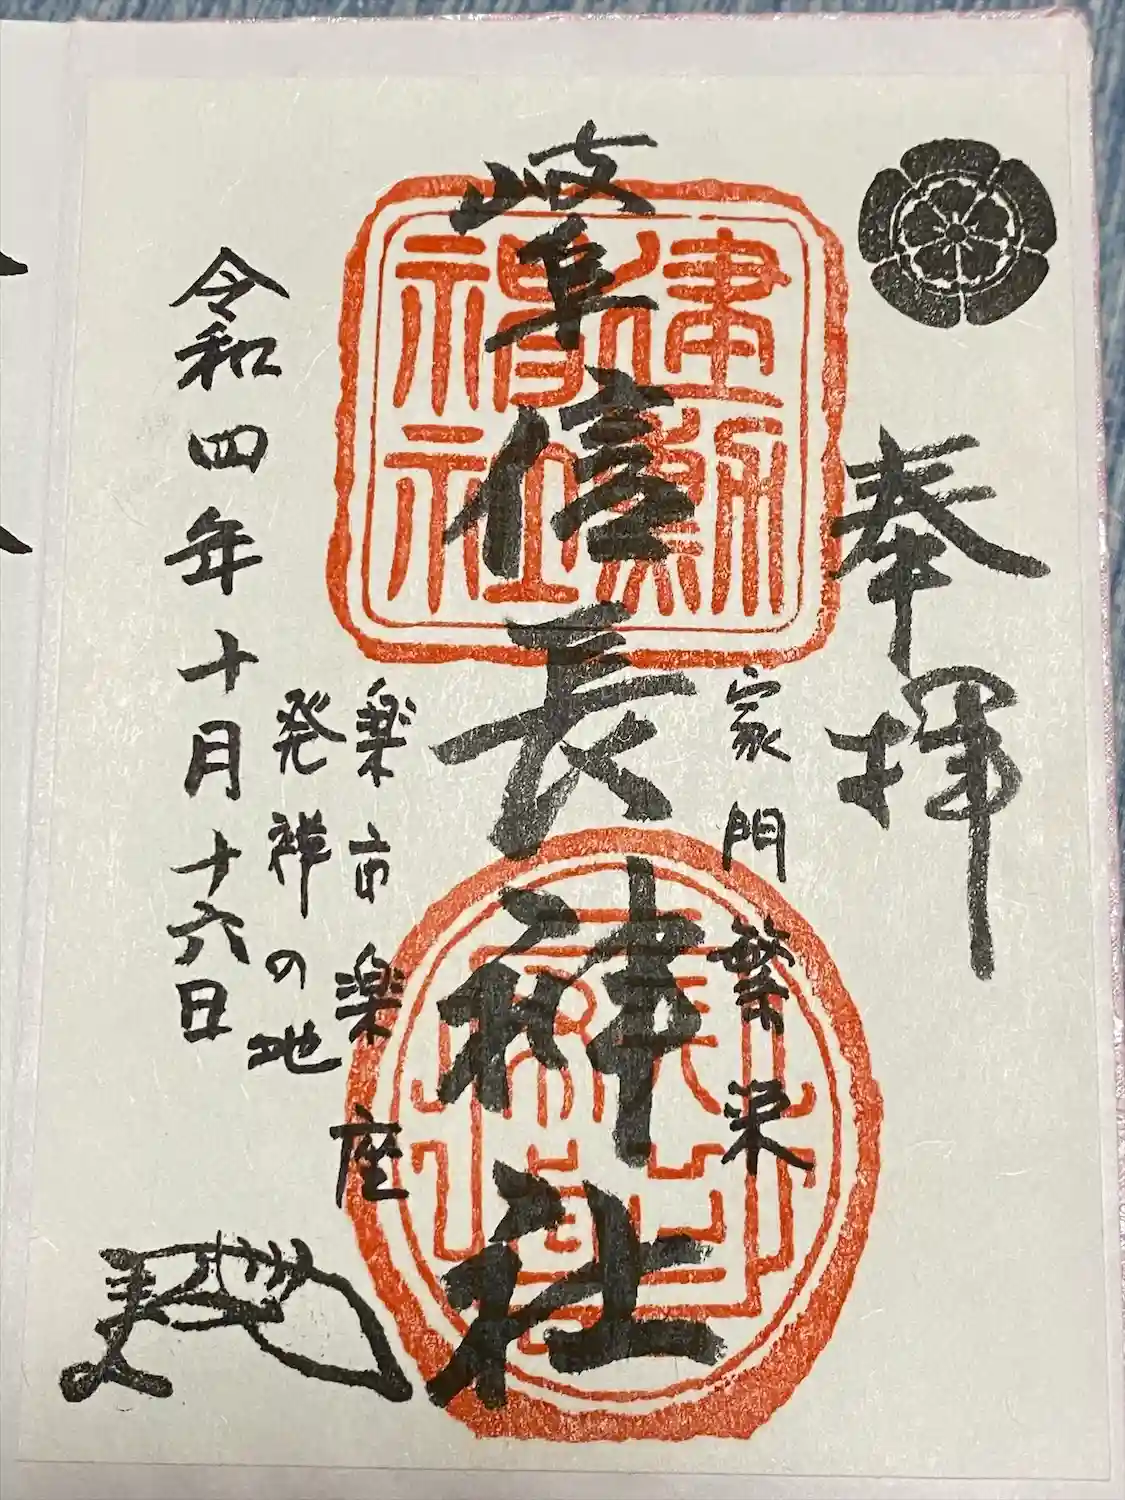 奉拝
家門繁栄
岐阜信長神社
建勲神社
楽市楽座
発祥の地
令和四年十月十六日